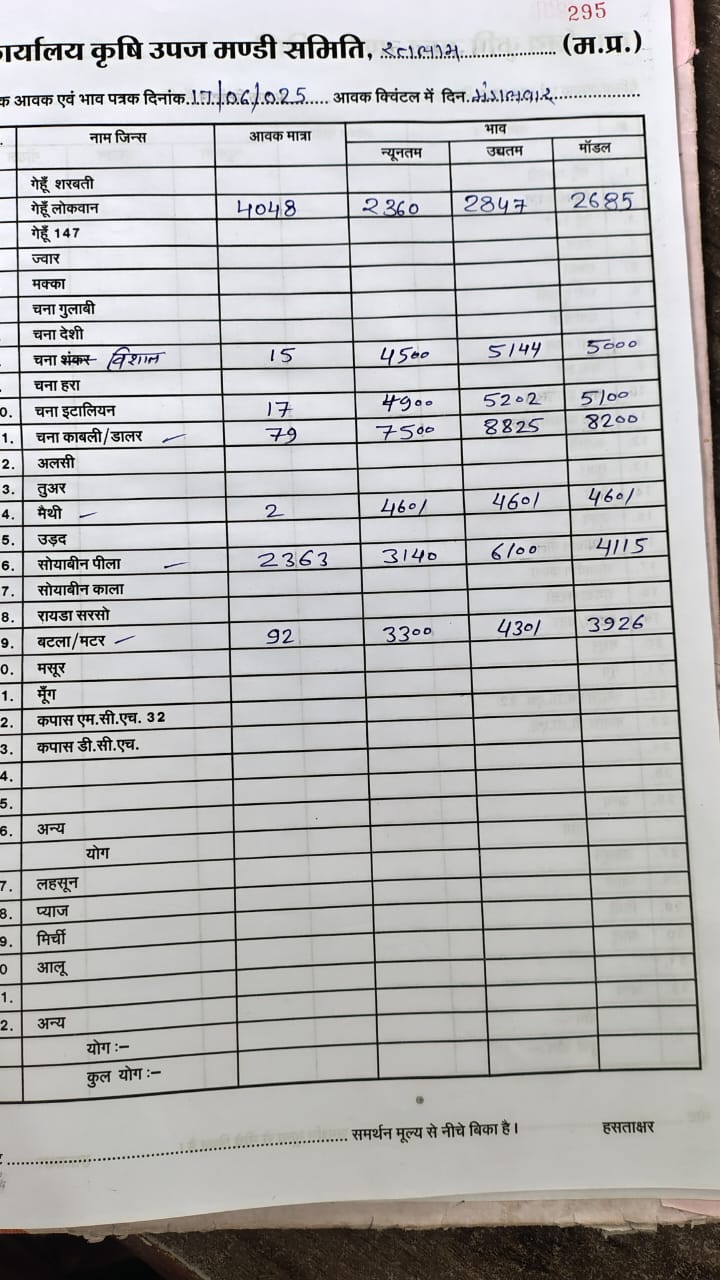 295
कार्यालय कृषि उपज मण्डी समिति, रतलाम (म.प्र.)
क आवक एवं भाव पत्रक दिनांक 17/06/025 आवक क्विंटल में दिन मंगलवार
नाम जिन्स आवक मात्रा भाव
न्यूनतम उच्चतम मॉडल
गेहूँ शरबती
गेहूँ लोकवान 4048 2360 2847 2685
गेहूँ 147
ज्वार
मक्का
चना गुलाबी
चना देशी
चना शंकर विशाल 15 4500 5144 5000
चना हरा
0. चना इटालियन 17 4900 5202 5100
1. चना काबली/डालर – 79 7500 8825 8200
2. अलसी
3. तुअर
4. मैथी – 2 4601 4601 4601
5. उड़द
6. सोयाबीन पीला – 2363 3140 6100 4115
7. सोयाबीन काला
8. रायडा सरसो
9. बटला/मटर – 92 3300 4301 3926
0. मसूर
1. मूँग
2. कपास एम.सी.एच. 32
3. कपास डी.सी.एच.
4.
5.
6. अन्य
योग
7. लहसून
8. प्याज
9. मिर्ची
0 आलू
1.
2. अन्य
योग :–
कुल योग :–
समर्थन मूल्य से नीचे बिका है। हसताक्षर